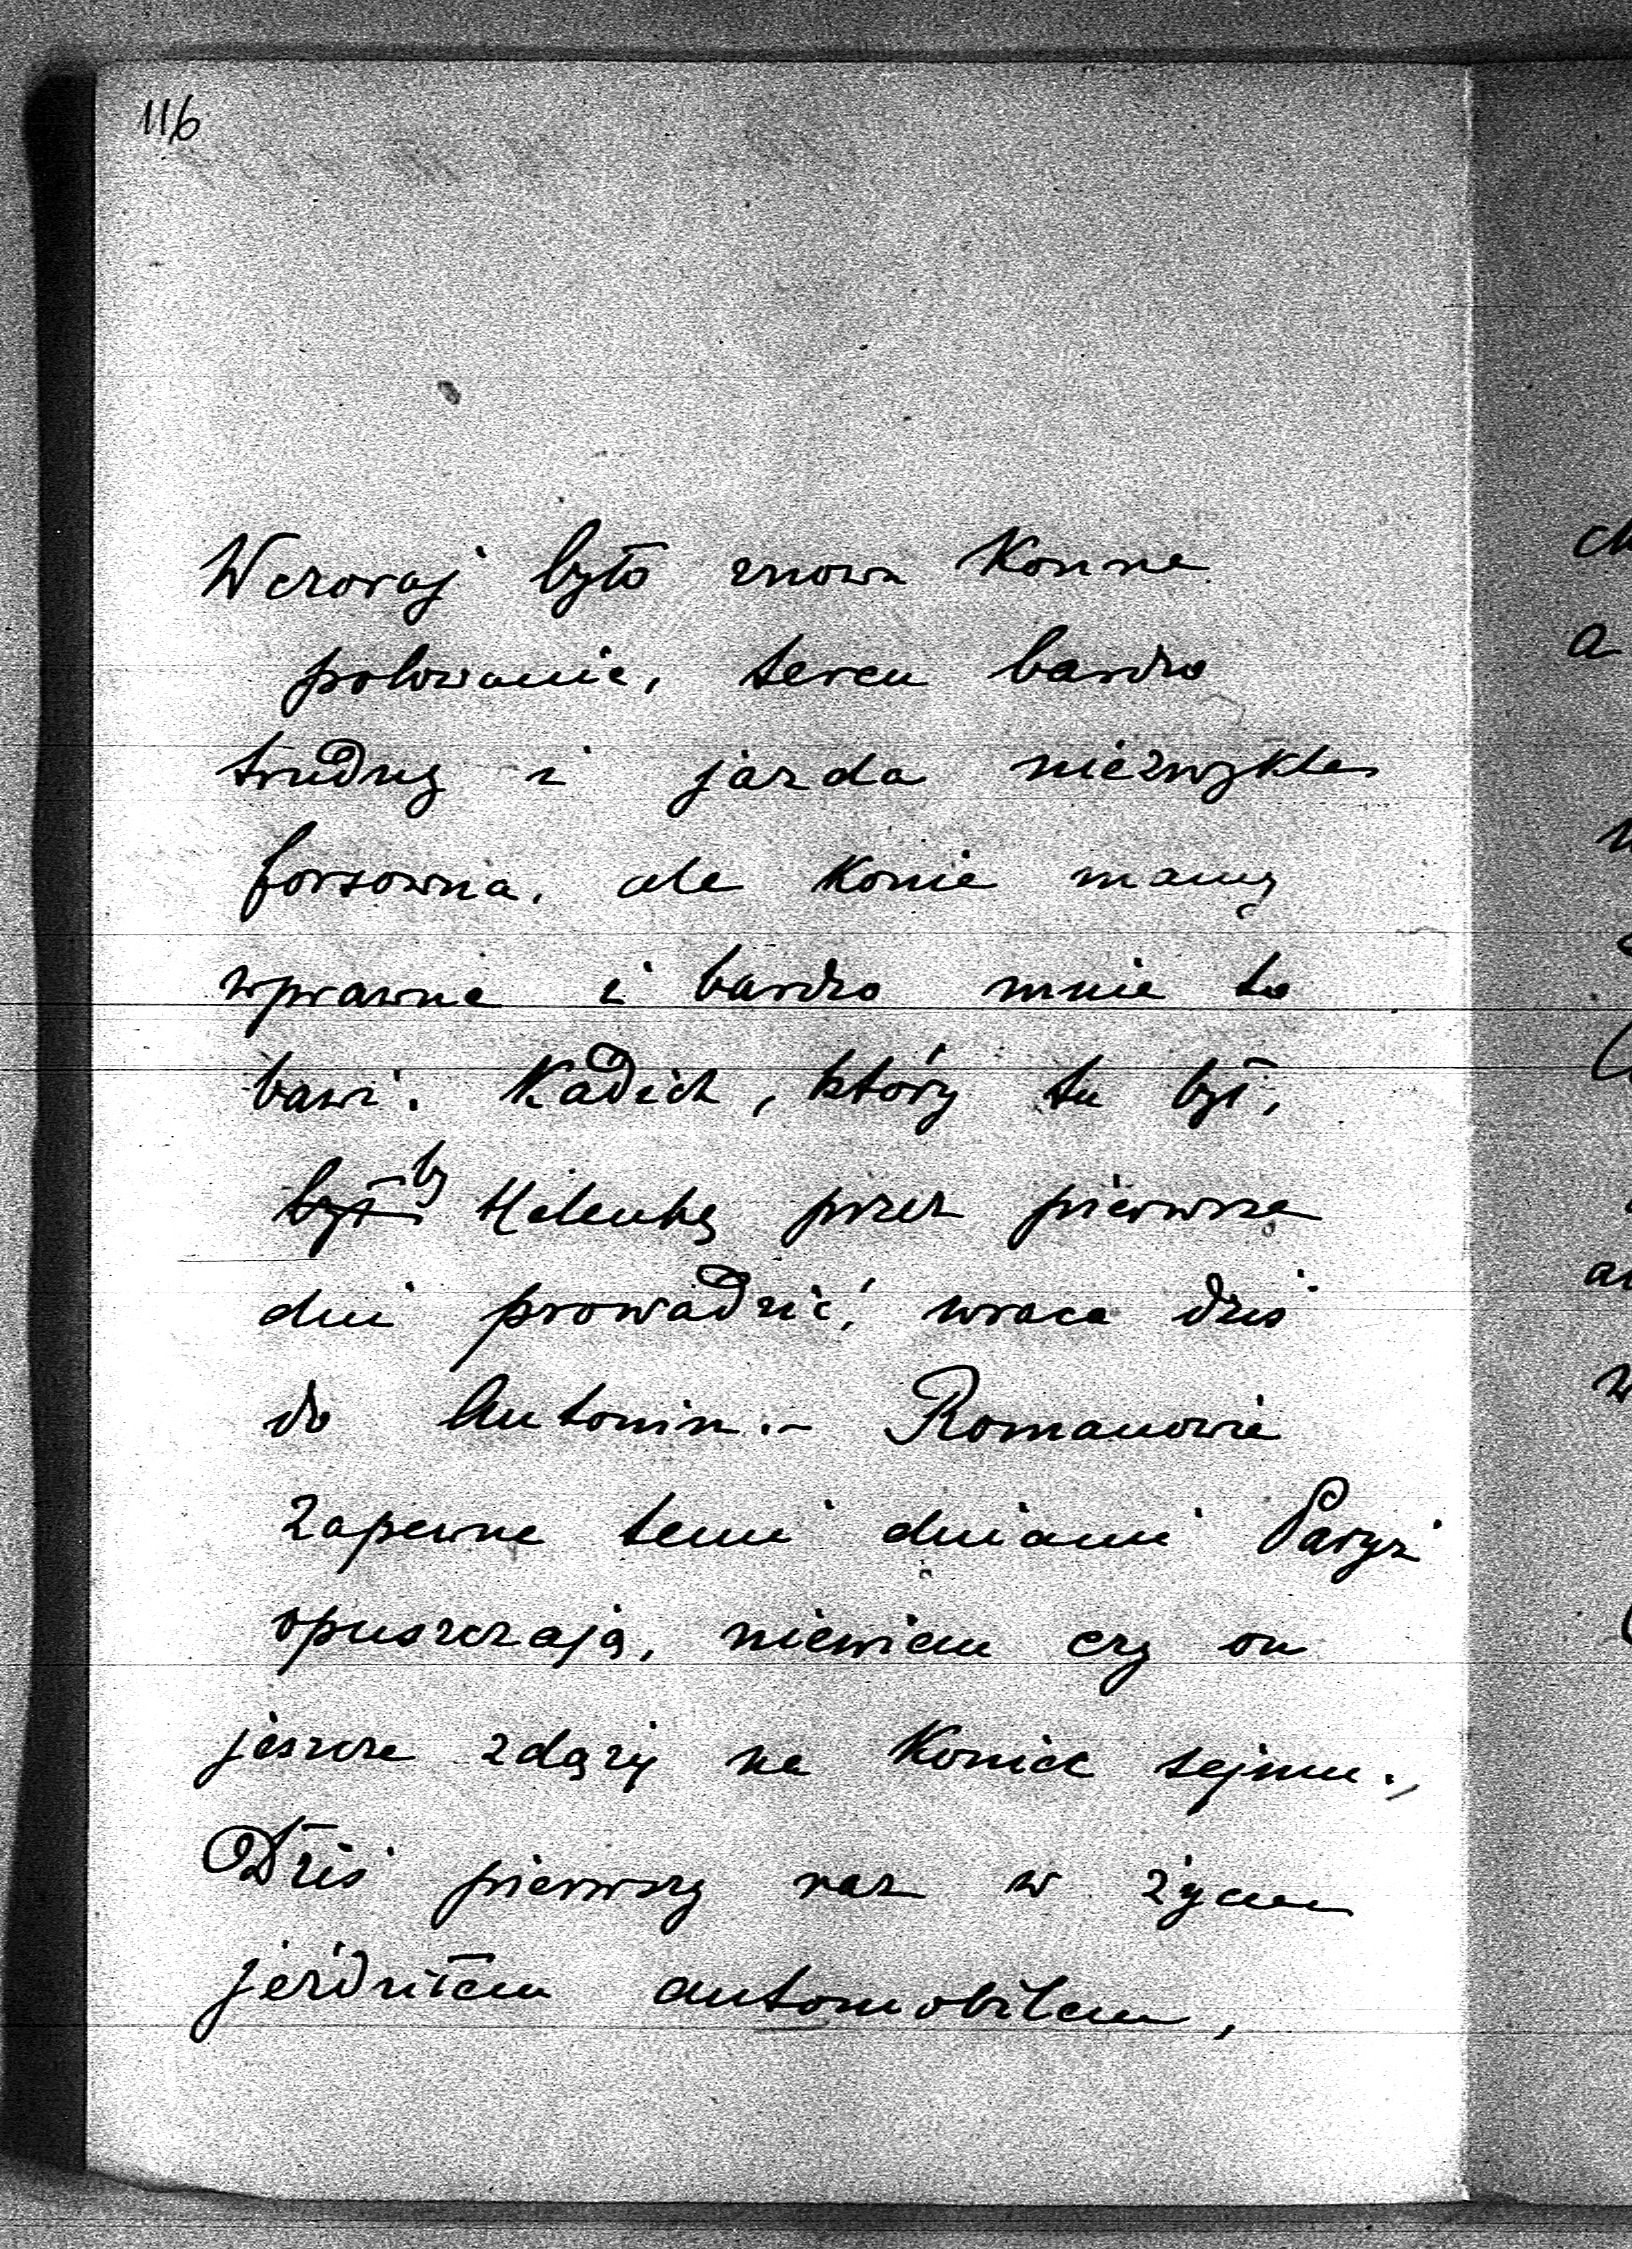 116
Wczoraj było znowu konne
polowanie, teren bardzo
trudny i jazda niezwykle
forsowna, ale konie mamy
wprawne i bardzo mnie to
bawi. Kadich, który tu był,
był by Helenkę przez pierwsze
dni prowadzić, wraca dziś
do Antonin.- Romanowie
zapewne temi dniami Paryż
opuszczają, niewiem czy on
jeszcze zdąży na koniec sejmu.,
Dziś pierwszy raz w życiu
jeździłem automobilem,
ch
a
w